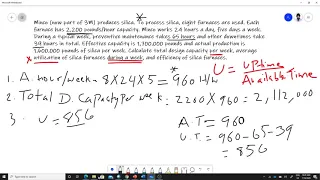 Minco (now part of 3M) produces silica. To process silica, eight furnaces are used. Each
furnace has 2,200 pounds/hour capacity. Minco works 24 hours a day, five days a week.
During a week, preventive maintenance takes 65 hours and other downtimes take
39 hours in total. Effective capacity is 1,700,000 pounds and actual production is
1,600,000 pounds of silica per week. Calculate total design capacity per week, average
utilization of silica furnaces during a week, and efficiency of silica furnaces.
U = uptime / Available Time
1. A. hour/week = 8X24X5 = 960 H/W
2. Total D. Capacity Per week: 2200 X 960 = 2,112,000
3. U = 856
A.T = 960
U.T. = 960-65-39
= 856